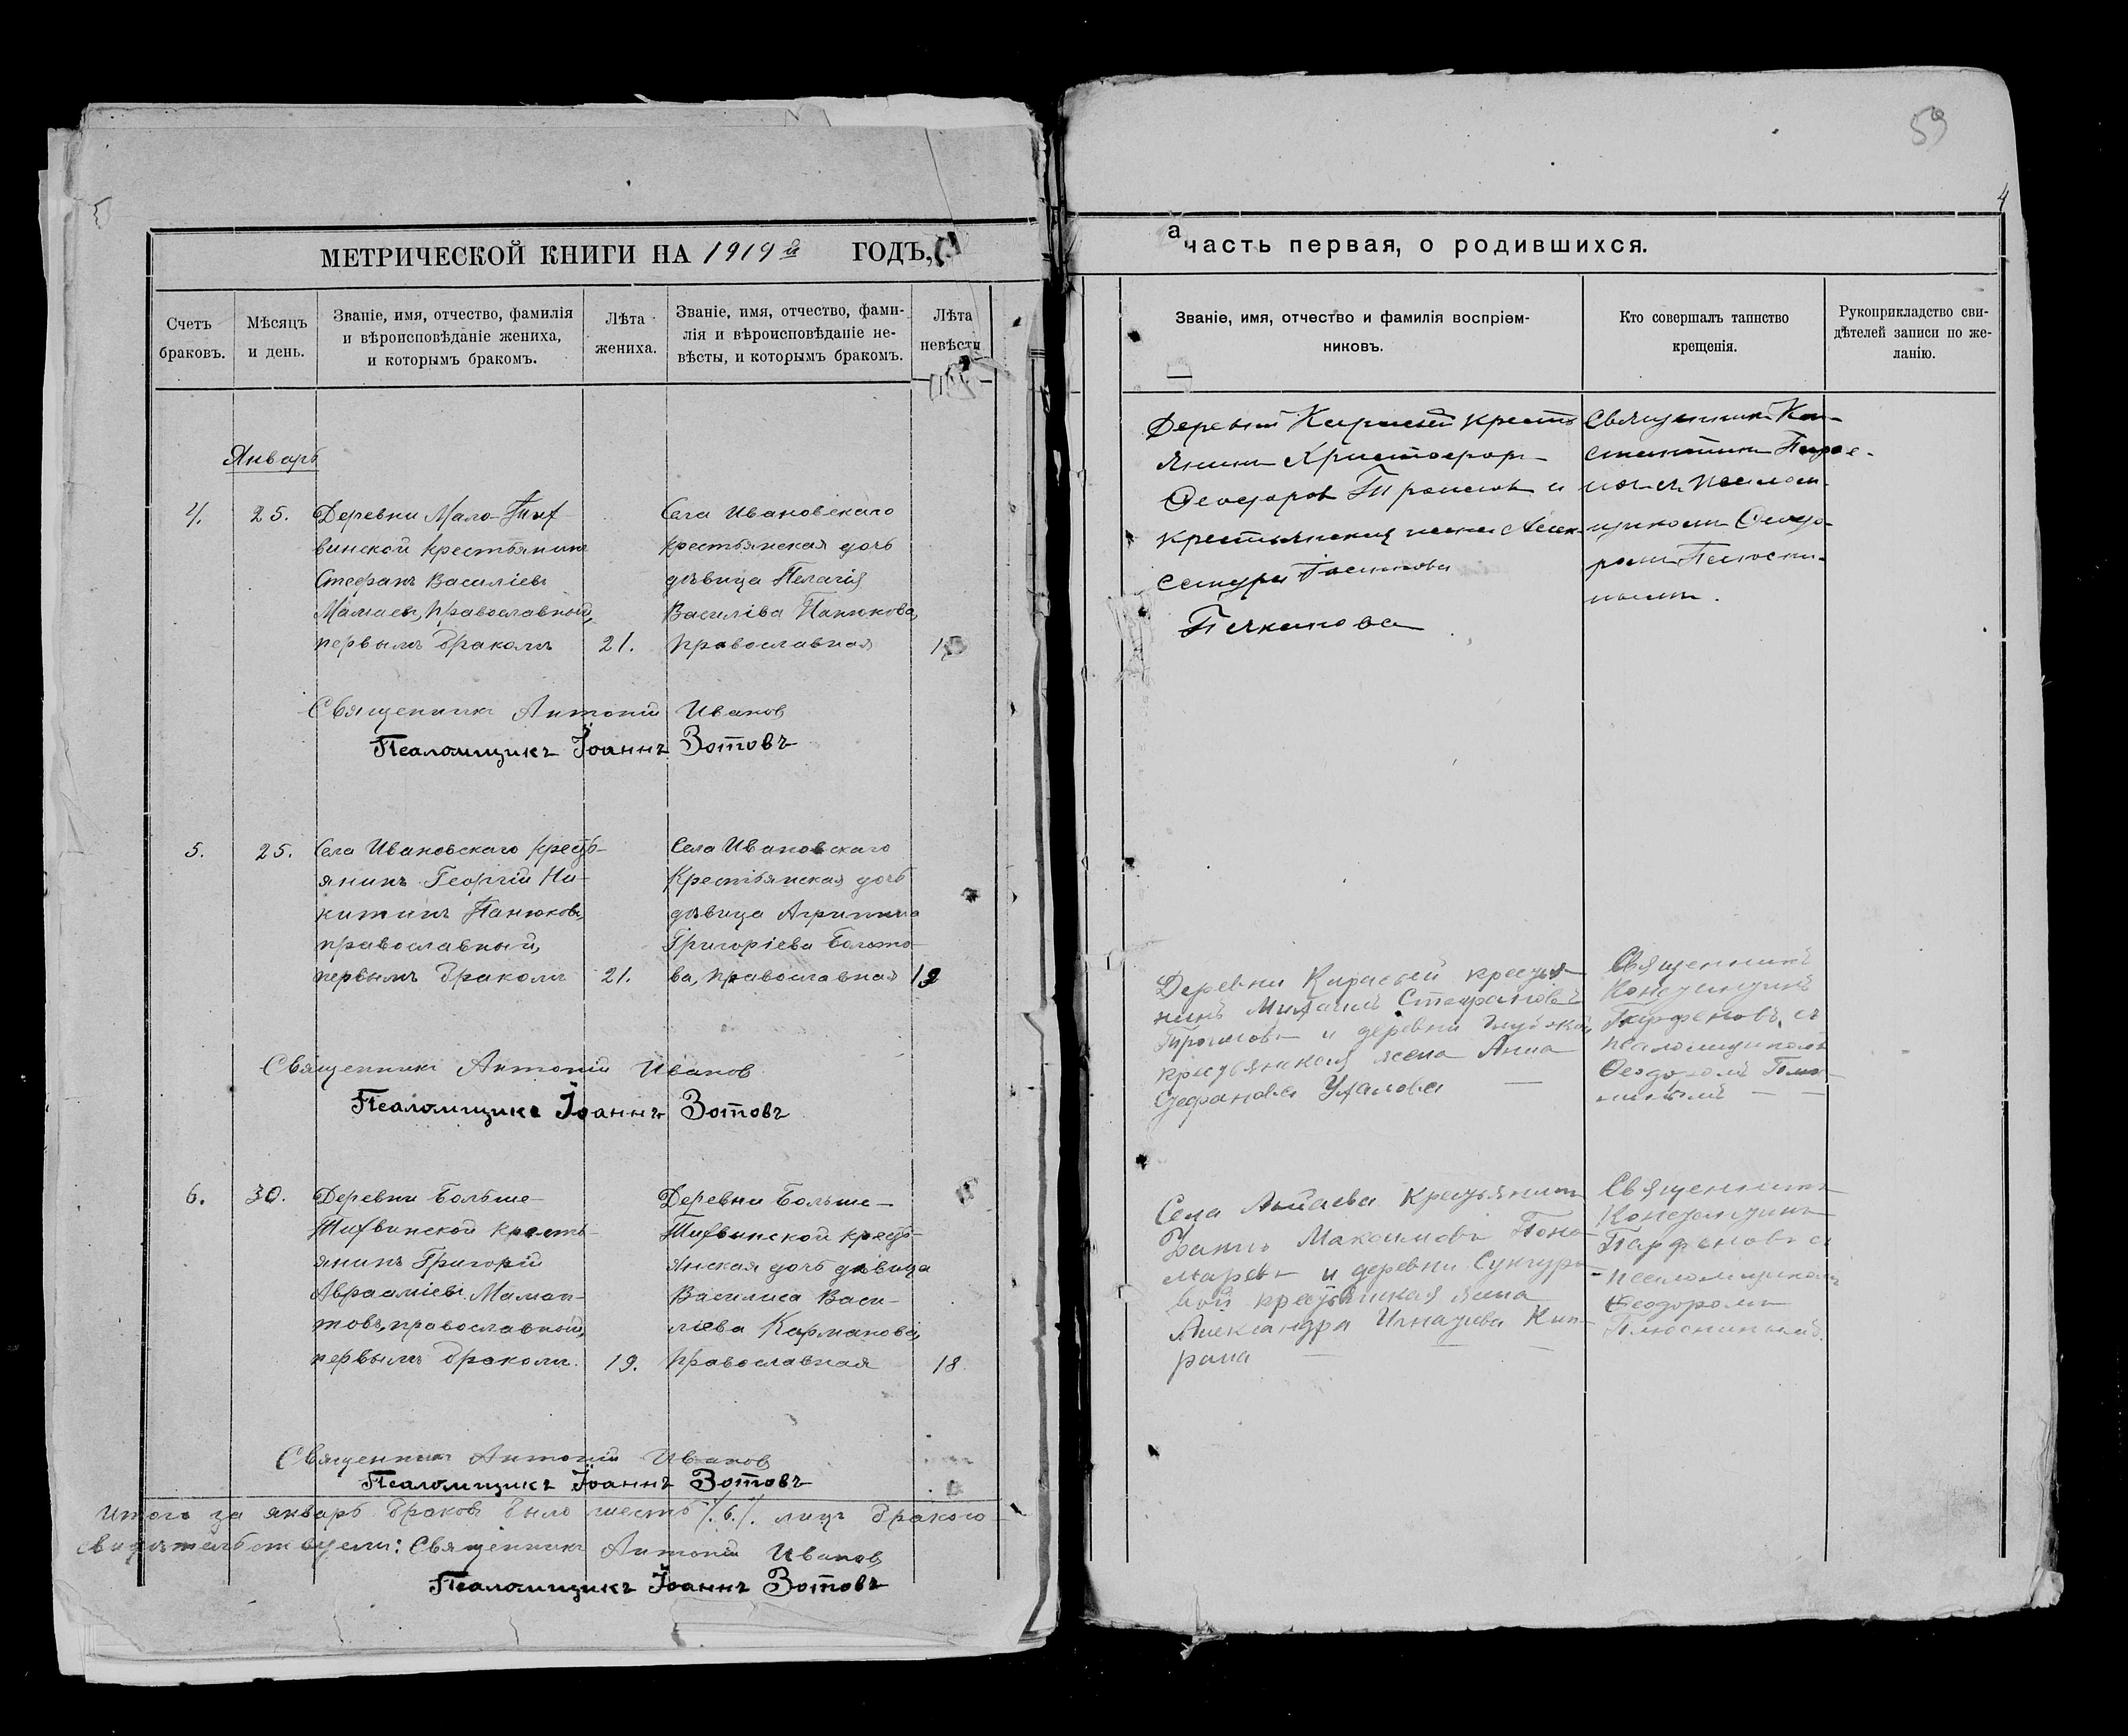 МЕТРИЧЕСКОЙ КНИГИ НА 1919й ГОДЪ,
Счетъ браковъ.
Мѣсяцъ и день.
Званіе, имя, отчество, фамилія
и вѣроисповѣданіе жениха,
и которымъ бракомъ.
Лѣта жениха.
Званіе, имя, отчество, фами-
лія и вѣроисповѣданіе не-
вѣсты, и которымъ бракомъ.
Лѣта невѣсты
Январь
4. 25.
Деревни Мало-Тихвинской крестьянинъ
Стефанъ Василіевъ
Мамаевъ, православный,
первымъ бракомъ 21.
Села Ивановскаго
крестьянская дочь
дѣвица Пелагія
Василіва Панюкова,
православная
Священникъ Антоній Иванов
Псаломщикъ Іоаннъ Зотовъ
5. 25.
Села Ивановскаго кресть-
янинъ Георгій Ни-
китинъ Панюковъ,
православный,
первымъ бракомъ 21.
Села Ивановскаго
Крестьянская дочь
дѣвица Агрипина
Григоріева Болото-
ва, православная 19
Священникъ Антоній Иванов
Псаломщикъ Іоаннъ Зотовъ
6. 30.
Деревни Больше-
Тихвинской кресть-
янинъ Григорій
Авраамиевъ Маман-
товъ, православный,
первымъ бракомъ. 19.
Деревни Больше-
Тихвинской кресть-
янская дочь дѣвица
Василиса Васи-
ліева Карманова,
православная 18
Священникъ Антоній Иванов
Псаломщикъ Іоаннъ Зотовъ
Итого за январь браков было шесть /.6./. лицъ
Священникъ Антоній Иванов
Псаломщикъ Іоаннъ Зотовъ
59
4
а часть первая, о родившихся.
Званіе, имя, отчество и фамилія воспріем-
никовъ.
Кто совершалъ таинство
крещенія.
Рукоприкладство сви-
дѣтелей записи по же-
ланію.
Деревни кресть
янинъ Христофор
Феодоров и
крестьянская жена Алек-
сандра
Священникъ Кон-
стантин Парфе-
новъ съ псалом-
щиком Феодо-
ром Плюсни-
ным.
Деревни крестья-
нинъ Михаилъ Стефановъ
и деревни
крестьянская жена Анна
Стефанова Ушакова
Священникъ
Константинъ
Парфеновъ съ
псаломщикомъ
Феодоромъ
Села крестьянинъ
Максимовъ Поно-
маревъ и деревни Сунгуро-
вой крестьянская жена
Александра Игнатьева
Священникъ
Константинъ
Парфеновъ съ
псаломщикомъ
Феодоромъ
Плюснинымъ.